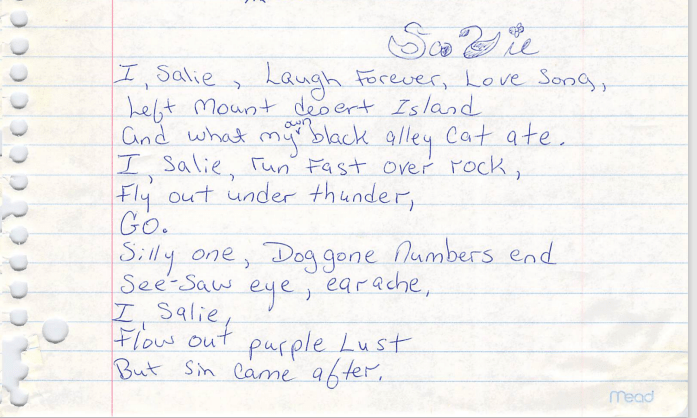 Salie
I, Salie, Laugh Forever, Love Song,
Left Mount desert Island
And what my own black alley Cat ate.
I, Salie, run Fast over rock,
Fly out under thunder,
GO.
Silly one, Doggone Numbers end
See-Saw eye, earache,
I, Salie,
Flow out purple Lust
But Sin Came after.
Mead